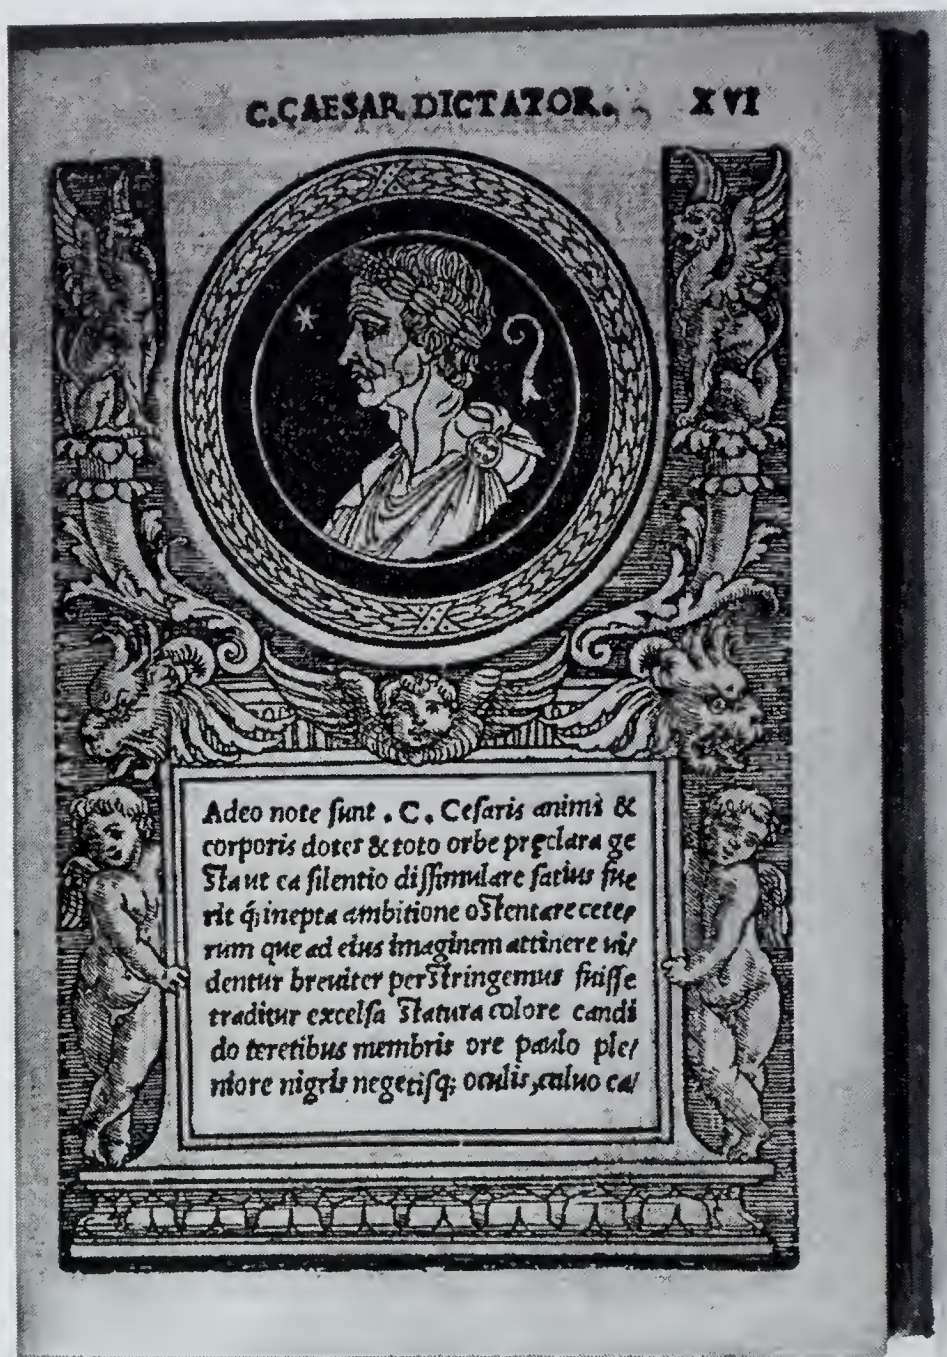 C. CAESAR DICTATOR. XVI
Adeo note sunt . C . Cesaris animi &
corporis dotes & toto orbe pręclara ge
sta ut ea silentio dissimulare satius fue
rit q̃; inepta ambitione ostentare cete/
rum que ad eius imaginem attinere ui/
dentur breuiter perstringemus fuisse
traditur excelsa statura colore candi
do teretibus membris ore paulo ple/
niore nigris negetisq; oculis, caluo ca/